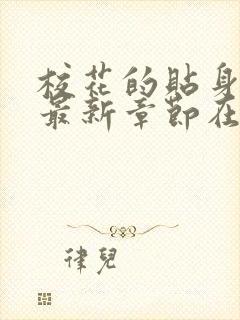 校花的貼身
最新章節在
律兒